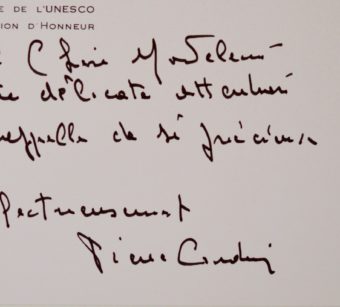 E DE L'UNESCO
ION D'HONNEUR
délicate attention
rappelle de si précieux
fectueusement
Pierre Cardin